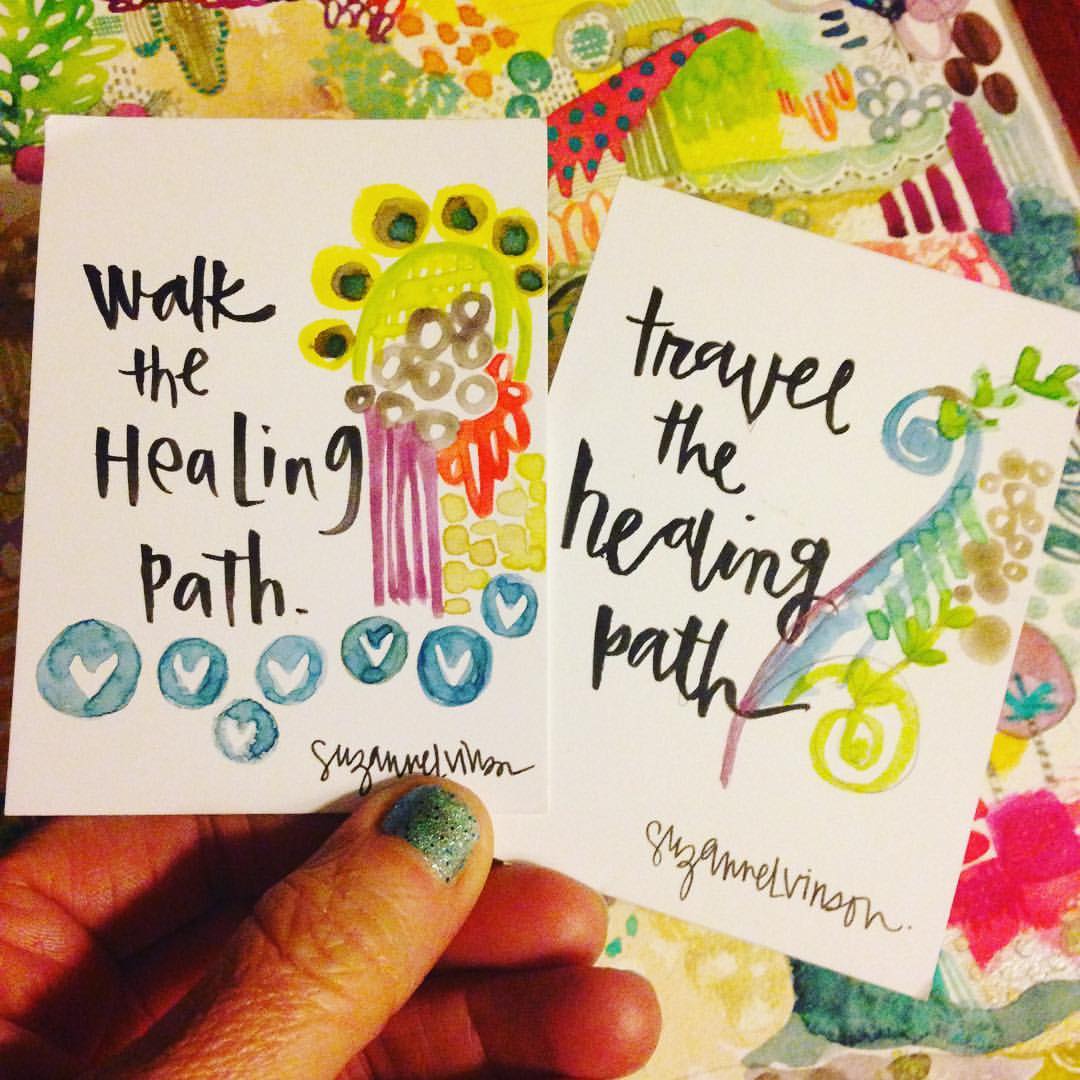 walk
the
Healing
path.
suzannelvinson
travel
the
healing
path
suzannelvinson.